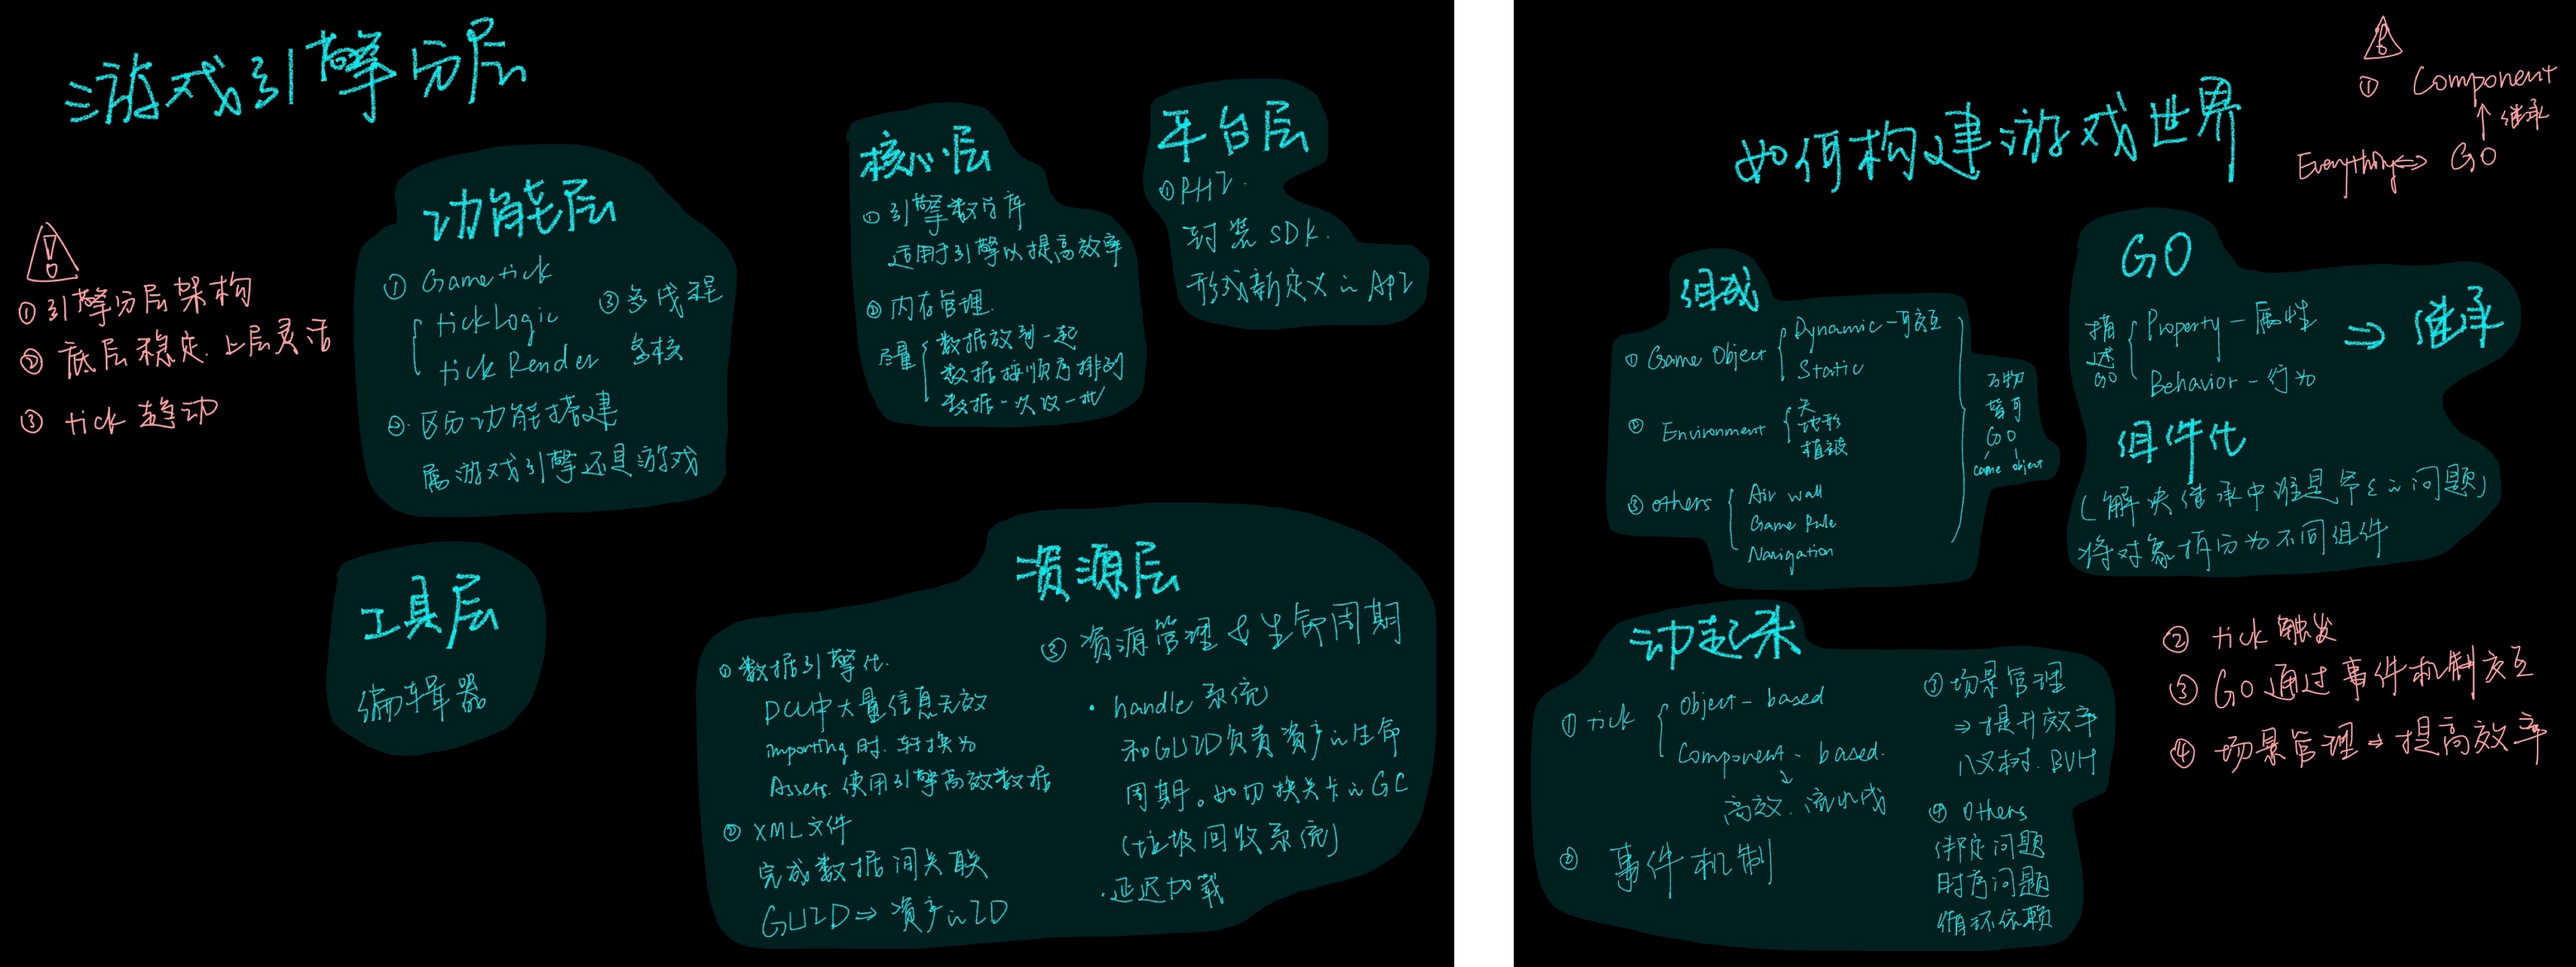 游戏引擎分层
①引擎分层架构
②底层稳定.上层灵活
③ tick 趋动
功能层
① Game tick
tick Logic
tick Render
③多线程
多核
②区分功能搭建
属游戏引擎还是游戏
核心层
①引擎数学库
适用于引擎以提高效率
②内存管理.
尽量
数据放到一起
数据按顺序排列
数据一次改一批
平台层
①RHI.
封装SDK.
形成新定义的API
工具层
编辑器
资源层
①数据引擎化.
DCC中大量信息无效
importing时.转换为
Assets.使用引擎高效数据
②XML文件
完成数据间关联
GUID⇒资产的ID
③资源管理&生命周期
· handle系统
和GUID负责资产的生命
周期。如切换关卡的GC
(垃圾回收系统)
·延迟加载
如何构建游戏世界
① Component
↑继承
Everything⇔ GO
组成
① Game Object
Dynamic—可交互
Static
② Environment
天
地形
植被
③ others
Air wall
Game Rule
Navigation
万物
皆可
GO
Game object
GO
描述GO
Property—属性
Behavior—行为
⇒ 继承
组件化
(解决继承中谁是爷爷的问题)
将对象拆分为不同组件
动起来
① tick
Object-based
Component-based.
↓
高效.流水线
② 事件机制
③场景管理
⇒提升效率
八叉树.BVH
④ Others
绑定问题
时序问题
循环依赖
② tick触发
③ GO通过事件机制交互
④ 场景管理→提高效率